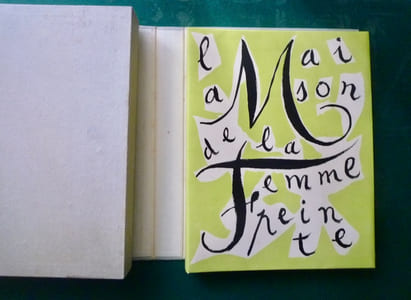 la Mai
son
de la
Femme
peinte